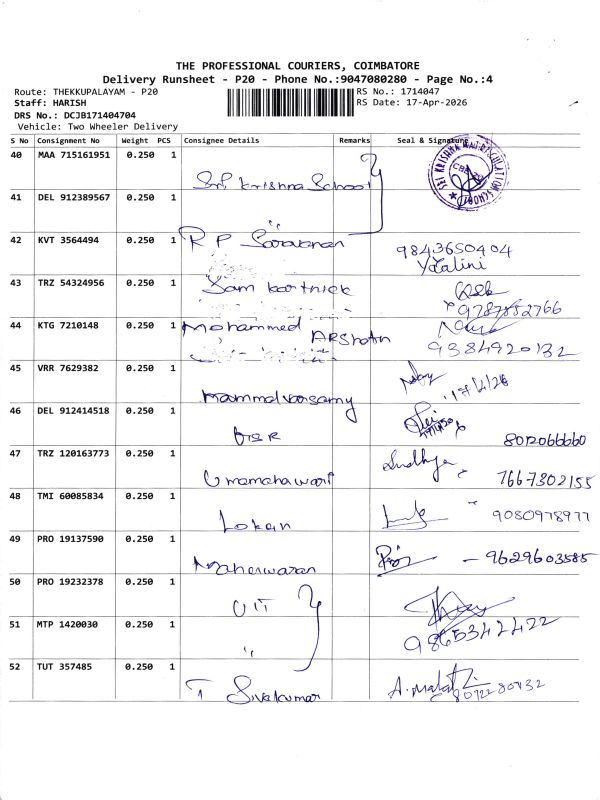 THE PROFESSIONAL COURIERS, COIMBATORE
Delivery Runsheet - P20 - Phone No.:9047080280 - Page No.:4
Route: THEKKUPALAYAM - P20
RS No.: 1714047
Staff: HARISH
RS Date: 17-Apr-2026
DRS No.: DCJB171404704
Vehicle: Two Wheeler Delivery
S No Consignment No Weight PCS Consignee Details Remarks Seal & Signature
40 MAA 715161951 0.250 1 Sri Krishna School
SRI KRISHNA MATRICULATION SCHOOL
41 DEL 912389567 0.250 1 "
42 KVT 3564494 0.250 1 R P Saravanan 9843650404
43 TRZ 54324956 0.250 1 Sam karthick 9787852766
44 KTG 7210148 0.250 1 Mohammed 9384920132
45 VRR 7629382 0.250 1 17/4/26
46 DEL 912414518 0.250 1
47 TRZ 120163773 0.250 1 Sandhya 7667302155
48 TMI 60085834 0.250 1 9080978977
49 PRO 19137590 0.250 1 - 9629603585
50 PRO 19232378 0.250 1
51 MTP 1420030 0.250 1 " 9865342422
52 TUT 357485 0.250 1 T Sivakumar